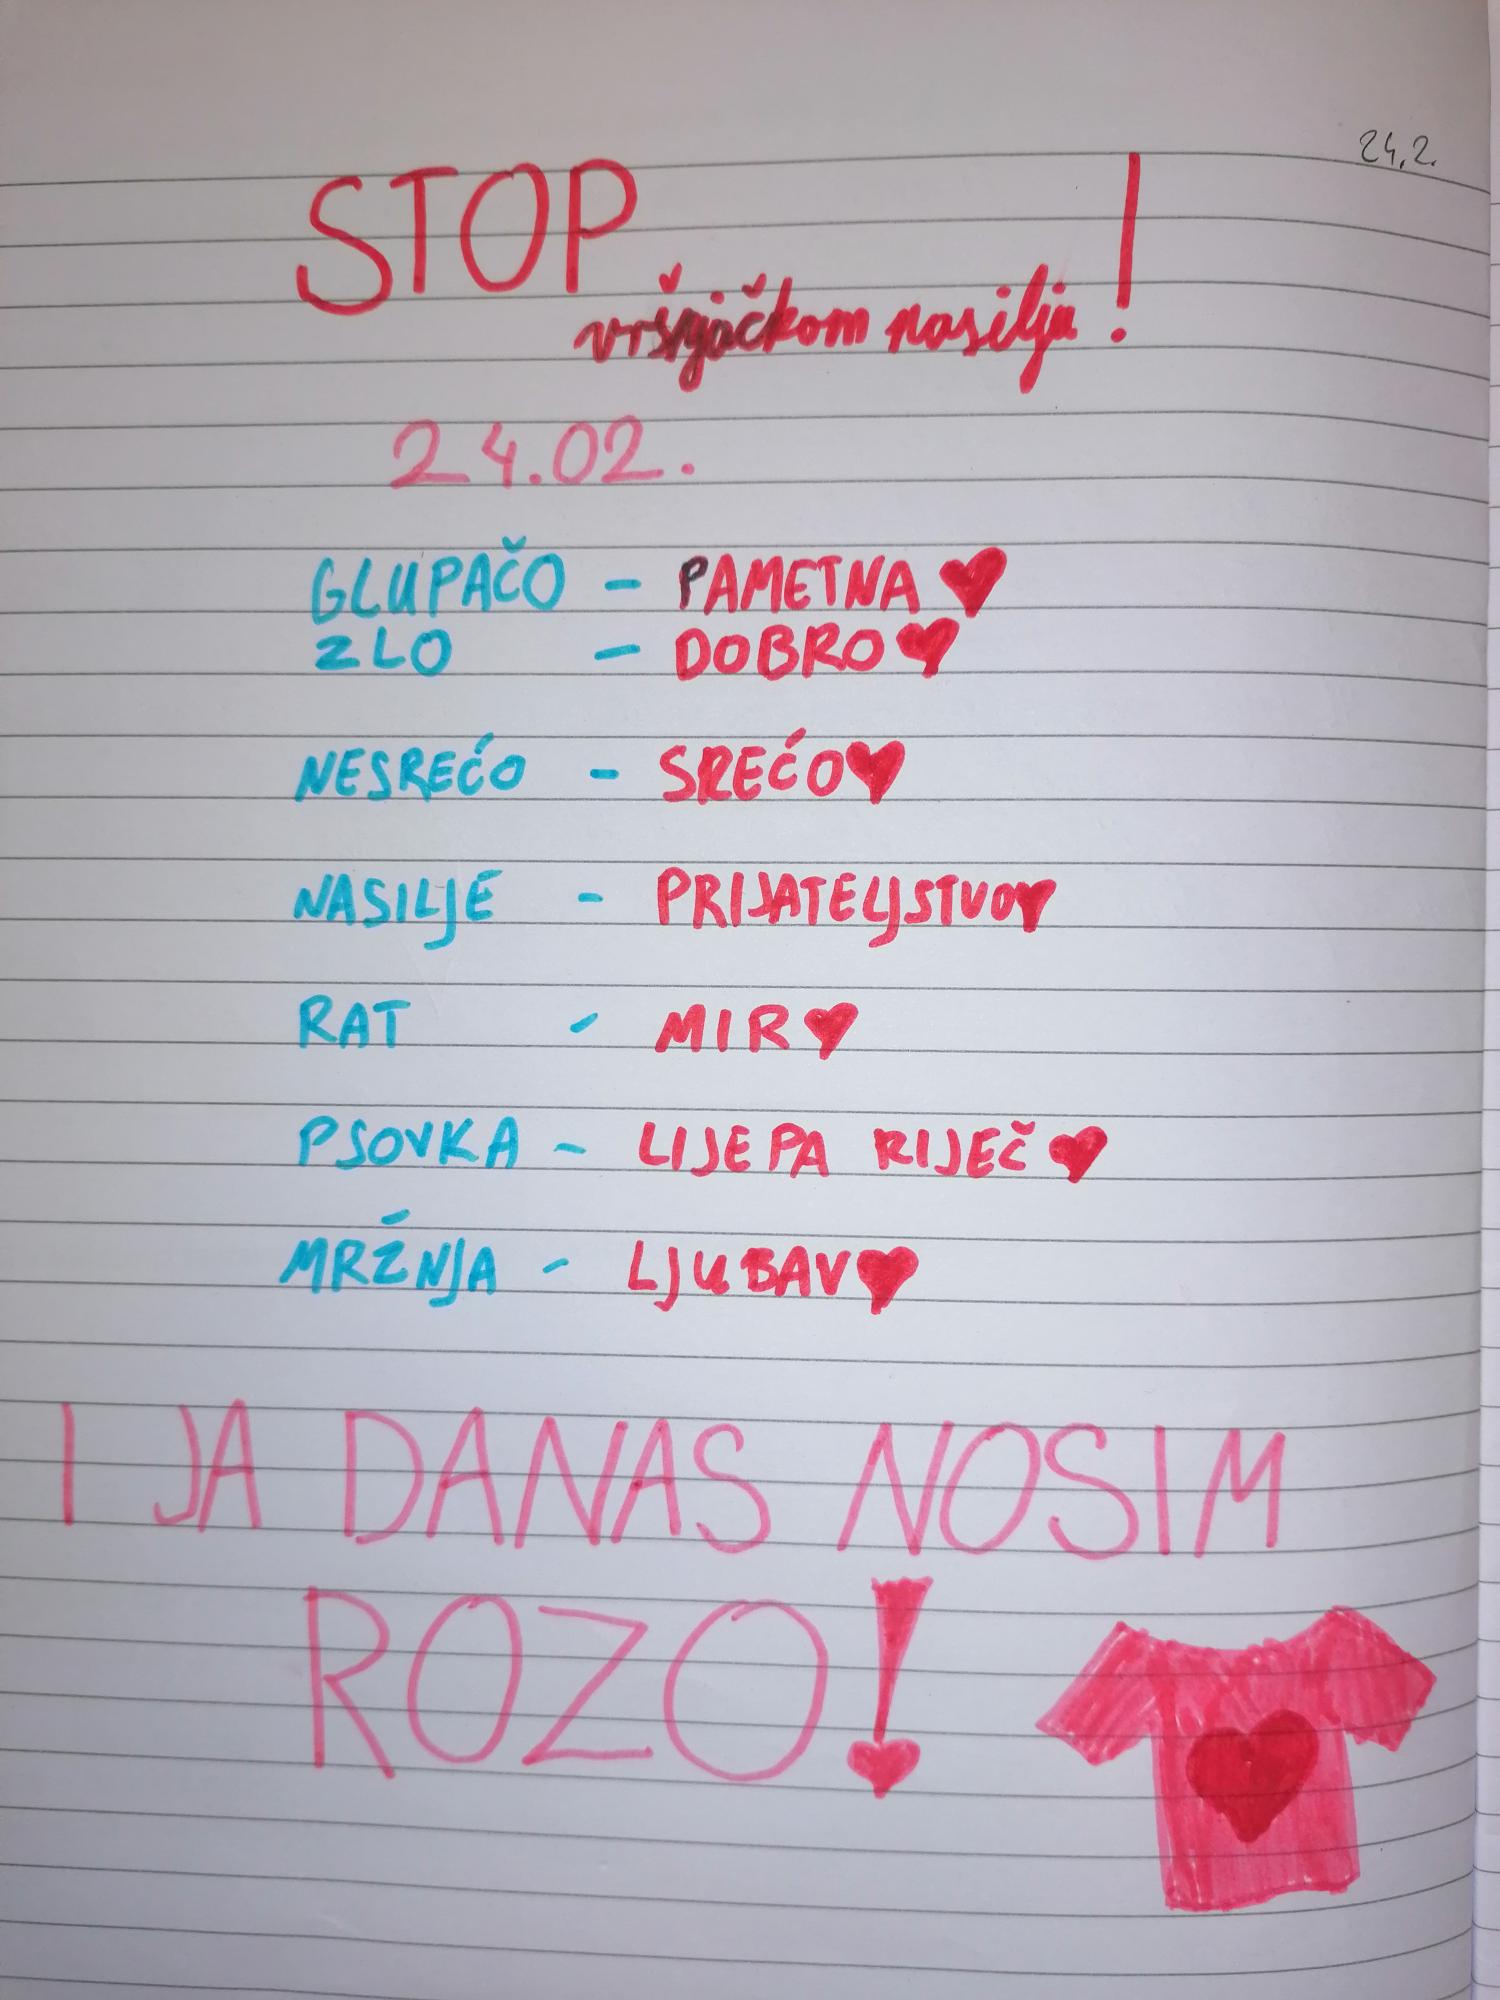 24.2.
STOP
vršnjačkom nasilju!
24.02.
GLUPAČO - PAMETNA ♥
ZLO - DOBRO ♥
NESREĆO - SREĆO ♥
NASILJE - PRIJATELJSTVO ♥
RAT - MIR ♥
PSOVKA - LIJEPA RIJEČ ♥
MRŽNJA - LJUBAV ♥
I JA DANAS NOSIM
ROZO!